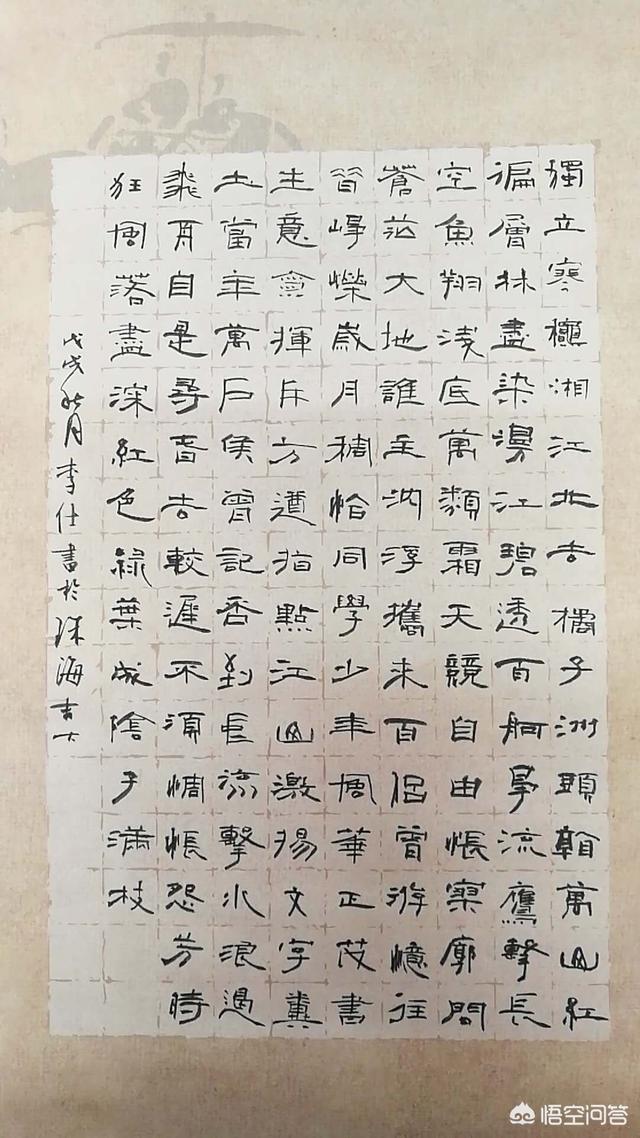 獨立寒龝湘江北去橘子洲頭看萬山紅
徧層林盡染漫江碧透百舸爭流鷹擊長
空魚翔淺底萬類霜天競自由悵寥廓問
蒼茫大地誰主沈浮攜來百侶曾游憶往
昔崢嶸歲月稠恰同學少年風華正茂書
生意氣揮斥方遒指點江山激揚文字糞
土當年萬戶侯曾記否到長流擊水浪遏
飛舟自是尋春去較遲不須惆悵怨芳時
狂風落盡深紅色綠葉成陰子滿枝
戊戌秋月李仕書於珠海吉大
悟空问答